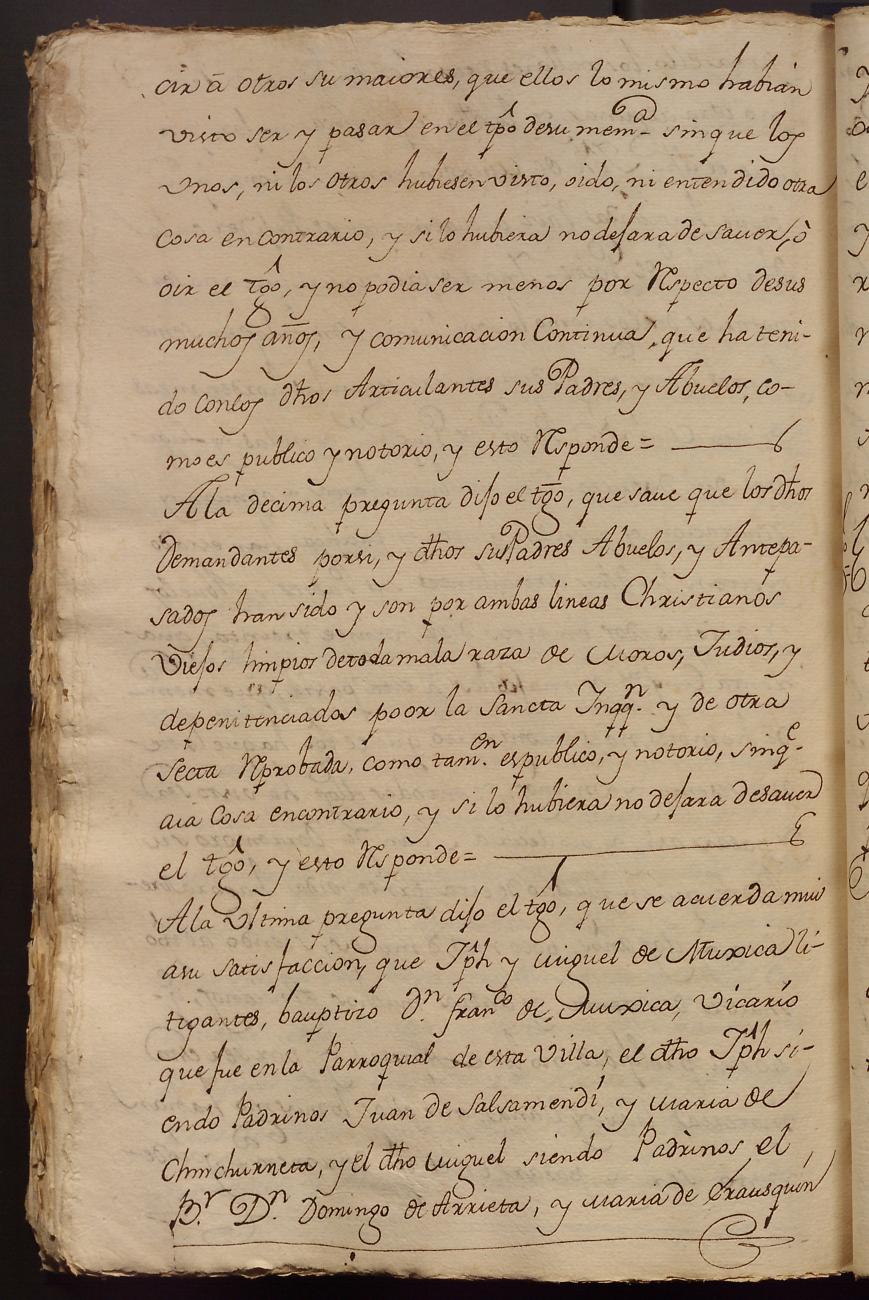 cir â otros su maiores, que ellos lo mismo habian
visto ser y pasar en el tpô desu mema sinque los
vnos, ni los otros hubiesen visto, oido, ni entendido otra
cosa encontrario, y si lo hubiera no dejara de sauer, ò
oir el tgô, y no podia ser menos por Respecto desus
muchos años, y comunicacion Continua, que ha teni-
do conlos dhos Articulantes sus Padres, y Abuelos, co-
mo es publico y notorio, y esto Responde=
Ala decima pregunta dijo el tgô, que saue que los dhos
Demandantes porsi, y dhos sus Padres Abuelos, y Antepa-
sados han sido y son por ambas lineas Christianos
Viejos limpios detoda mala raza de Moros, Judios, y
depenitenciados poor la Sancta Inqqn. y de otra
secta Reprobada, como tamen. es publico, y notorio, sinqe-
aia Cosa encontrario, y si lo hubiera no dejara desauer
el tgô, y esto Responde=
Ala Vltima pregunta dijo el tgô, que se acuerda mui
asu satisfaccion, que Jph y Miguel de Muxica li-
tigantes, bauptizo Dn. Franco de Muxica, Vicario
que fue en la Parroquial de esta Villa, el dho Jph si-
endo Padrinos Juan de Salsamendi, y Maria de
Chinchurreta, y el dho Miguel siendo Padrinos el
Br. Dn. Domingo de Arrieta, y Maria de Erausquin